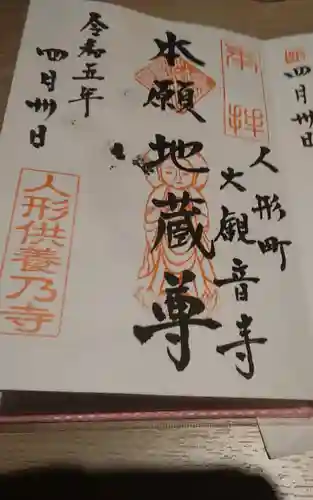 四月卅日
奉拝
人形町
大観音寺
本願地蔵尊
令和五年
四月卅日
人形供養乃寺